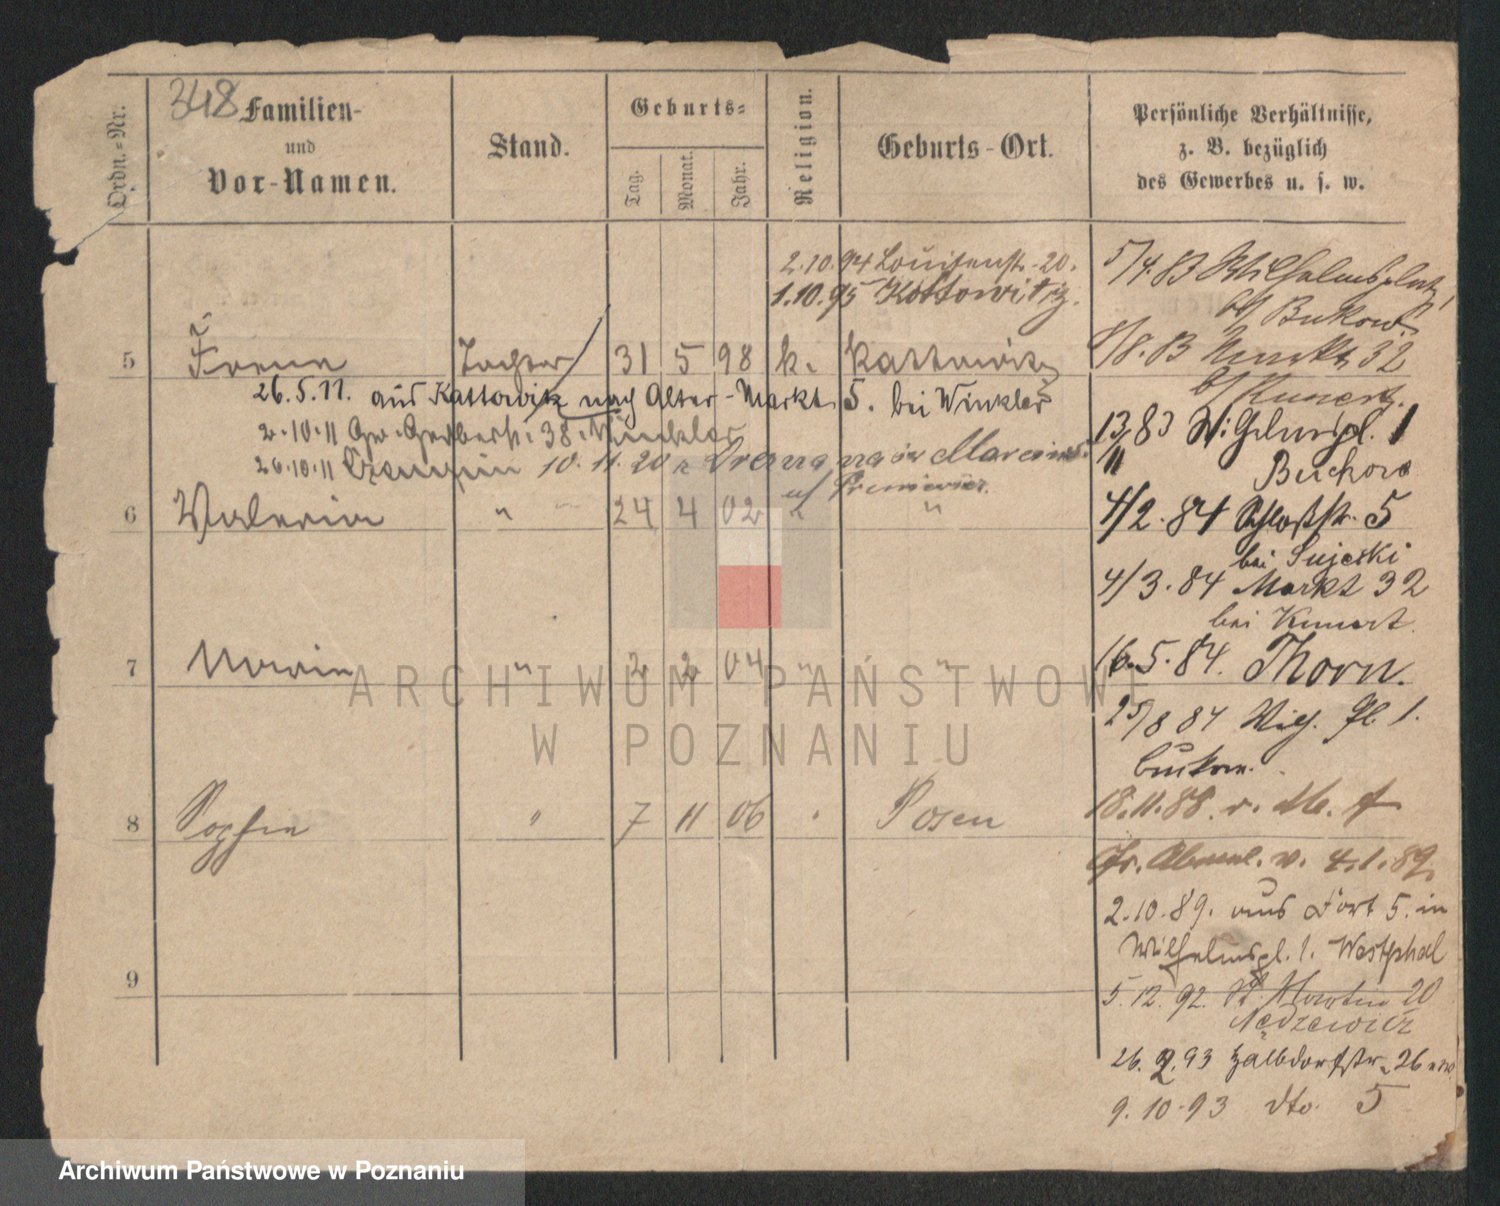 348
Ordn.=Nr.
Familien-
und
Vor-Namen.
Stand.
Geburts=
Tag.
Monat.
Jahr.
Religion.
Geburts-Ort.
Persönliche Verhältnisse,
z. B. bezüglich
des Gewerbes u. s. w.
2.10.94 Louisenstr. 20.
1.10.95 Kattowitz.
5 Irene Tochter 31 5 98 k. Kattowitz
26.5.11. aus Kattowitz nach Alter-Markt 5. bei Winkler
2.10.11 Gr. Gerberstr. 38. Winkler
26.10.11 10.11.20 z Drezna na św Marcin
u/
6 Valeria " " 24 4 02 " "
7 Maria " 2 2 04 " "
8 Sophie " 7 11 06 " Posen
9
5/4.83 Wilhelmsplatz
b/ Bukow
8/8.83 Markt 32
b/ Kunert.
13/11 83 Wilhelmspl. 1
4/2.84 Schloßstr. 5
bei Sujecki
4/3.84 Markt 32
bei Kunert.
16.5.84. Thorn.
25/8 84 Wilh. Pl 1.
18.11.88. v. M.
v. 4.1.89.
2.10.89. aus Fort 5. in
Wilhelmspl. 1. Westphal
5.12.92. St. Martin 20
26.2.93 Halbdorfstr. 26
9.10.93 dto. 5
ARCHIWUM PAŃSTWOWE
W POZNANIU
Archiwum Państwowe w Poznaniu